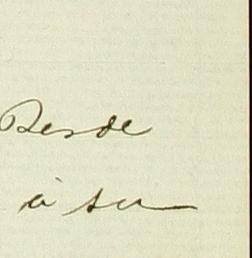 Desde
à su